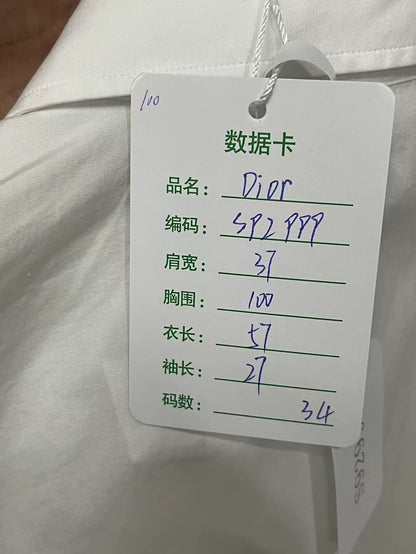 100
数据卡
品名: Dior
编码: SP2 PPP
肩宽: 37
胸围: 100
衣长: 57
袖长: 27
码数: 34